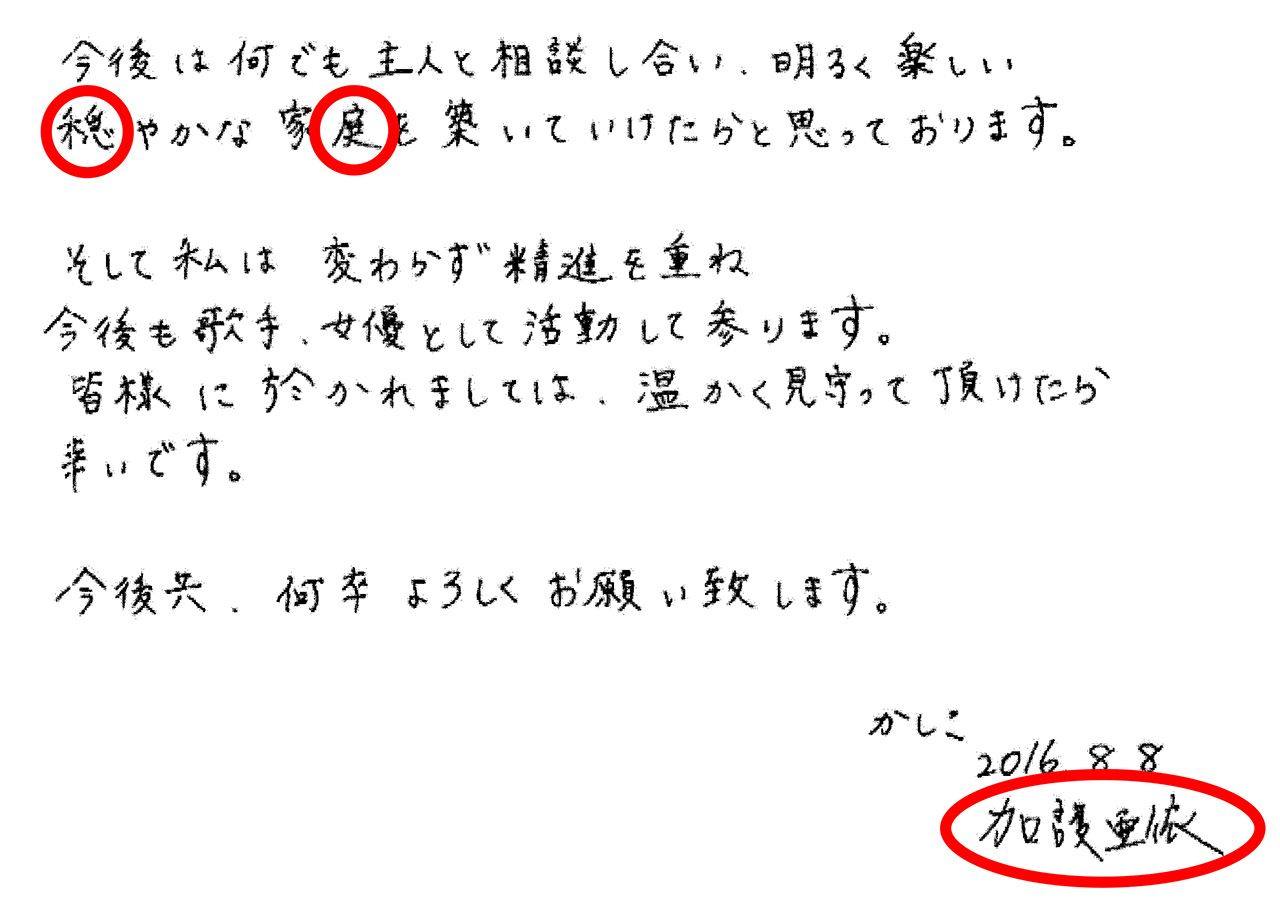 今後は何でも主人と相談し合い、明るく楽しい
穏やかな家庭を築いていけたらと思っております。
そして私は変わらず精進を重ね
今後も歌手、女優として活動して参ります。
皆様に於かれましては、温かく見守って頂けたら
幸いです。
今後共、何卒よろしくお願い致します。
かしこ
2016.8.8
加護亜依